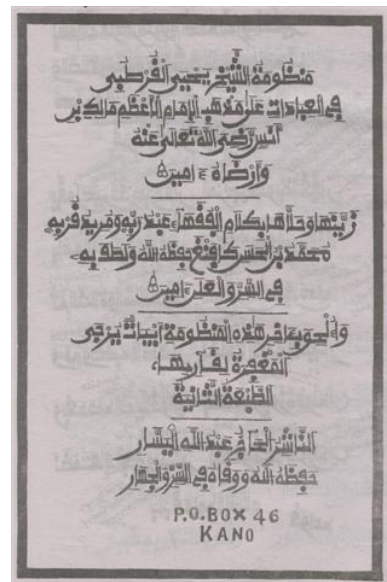 منظومة الشيخ يحيى القرطبي
في العبادات على مذهب الإمام الأعظم مالك بن
أنس رضي الله تعالى عنه
وأرضاه ءامين
زينها وحلاها بكلام الفقهاء عبد ربه ومريد قربه
محمد بن الحسن كافنغ حفظه الله ولطف به
في السر والعلن ءامين
وألحق بآخر هذه المنظومة أبيات يرجى
المغفرة لقارئها
الطبعة الثانية
الناشر الحاج عبد الله اليسار
حفظه الله ووقاه في السر والجهار
P.O.BOX 46
KANO